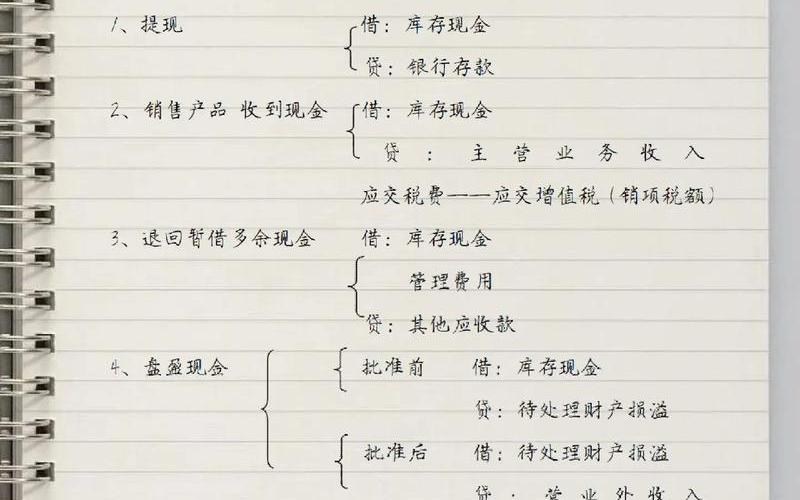 1、提现 借：库存现金
贷：银行存款
2、销售产品 收到现金 借：库存现金
贷：主营业务收入
应交税费——应交增值税（销项税额）
3、退回暂借多余现金 借：库存现金
管理费用
贷：其他应收款
4、盘盈现金 批准前 借：库存现金
贷：待处理财产损溢
批准后 借：待处理财产损溢
贷：营业外收入